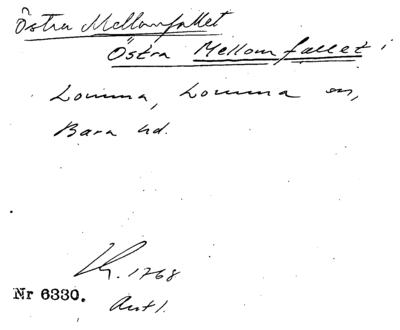 Östra Mellomfallet
Östra Mellomfallet i
Lomma, Lomma sn,
Bara hd.
1768
Nr 6330.